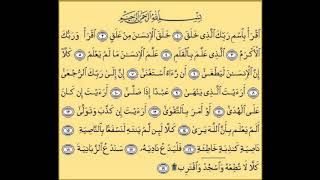 بِسۡمِ ٱللَّهِ ٱلرَّحۡمَٰنِ ٱلرَّحِيمِ
ٱقۡرَأۡ بِٱسۡمِ رَبِّكَ ٱلَّذِي خَلَقَ ١ خَلَقَ ٱلۡإِنسَٰنَ مِنۡ عَلَقٍ ٢ ٱقۡرَأۡ وَرَبُّكَ
ٱلۡأَكۡرَمُ ٣ ٱلَّذِي عَلَّمَ بِٱلۡقَلَمِ ٤ عَلَّمَ ٱلۡإِنسَٰنَ مَا لَمۡ يَعۡلَمۡ ٥ كَلَّآ
إِنَّ ٱلۡإِنسَٰنَ لَيَطۡغَىٰٓ ٦ أَن رَّءَاهُ ٱسۡتَغۡنَىٰٓ ٧ إِنَّ إِلَىٰ رَبِّكَ ٱلرُّجۡعَىٰٓ ٨
أَرَءَيۡتَ ٱلَّذِي يَنۡهَىٰ ٩ عَبۡدًا إِذَا صَلَّىٰٓ ١٠ أَرَءَيۡتَ إِن كَانَ
عَلَى ٱلۡهُدَىٰٓ ١١ أَوۡ أَمَرَ بِٱلتَّقۡوَىٰٓ ١٢ أَرَءَيۡتَ إِن كَذَّبَ وَتَوَلَّىٰٓ ١٣
أَلَمۡ يَعۡلَم بِأَنَّ ٱللَّهَ يَرَىٰ ١٤ كَلَّا لَئِن لَّمۡ يَنتَهِ لَنَسۡفَعَۢا بِٱلنَّاصِيَةِ ١٥
نَاصِيَةٖ كَٰذِبَةٍ خَاطِئَةٖ ١٦ فَلۡيَدۡعُ نَادِيَهُۥ ١٧ سَنَدۡعُ ٱلزَّبَانِيَةَ ١٨
كَلَّا لَا تُطِعۡهُ وَٱسۡجُدۡۤ وَٱقۡتَرِب ۩ ١٩